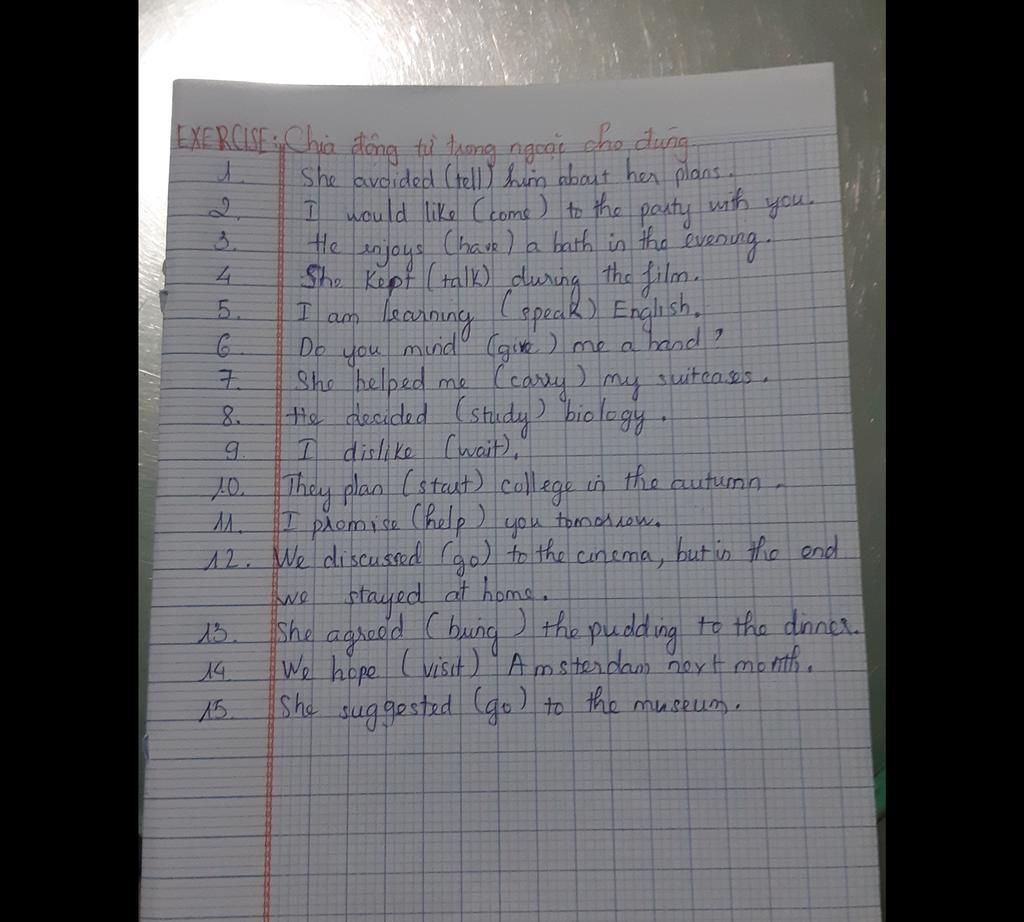 EXERCISE: Chia động từ trong ngoặc cho đúng
1. She avoided (tell) him about her plans.
2. I would like (come) to the party with you.
3. He enjoys (have) a bath in the evening.
4 She kept (talk) during the film.
5. I am learning (speak) English.
6. Do you mind (give) me a hand?
7. She helped me (carry) my suitcases.
8. He decided (study) biology.
9. I dislike (wait).
10. They plan (start) college in the autumn.
11. I promise (help) you tomorrow.
12. We discussed (go) to the cinema, but in the end
we stayed at home.
13. She agreed (bring) the pudding to the dinner.
14. We hope (visit) Amsterdam next month.
15. She suggested (go) to the museum.